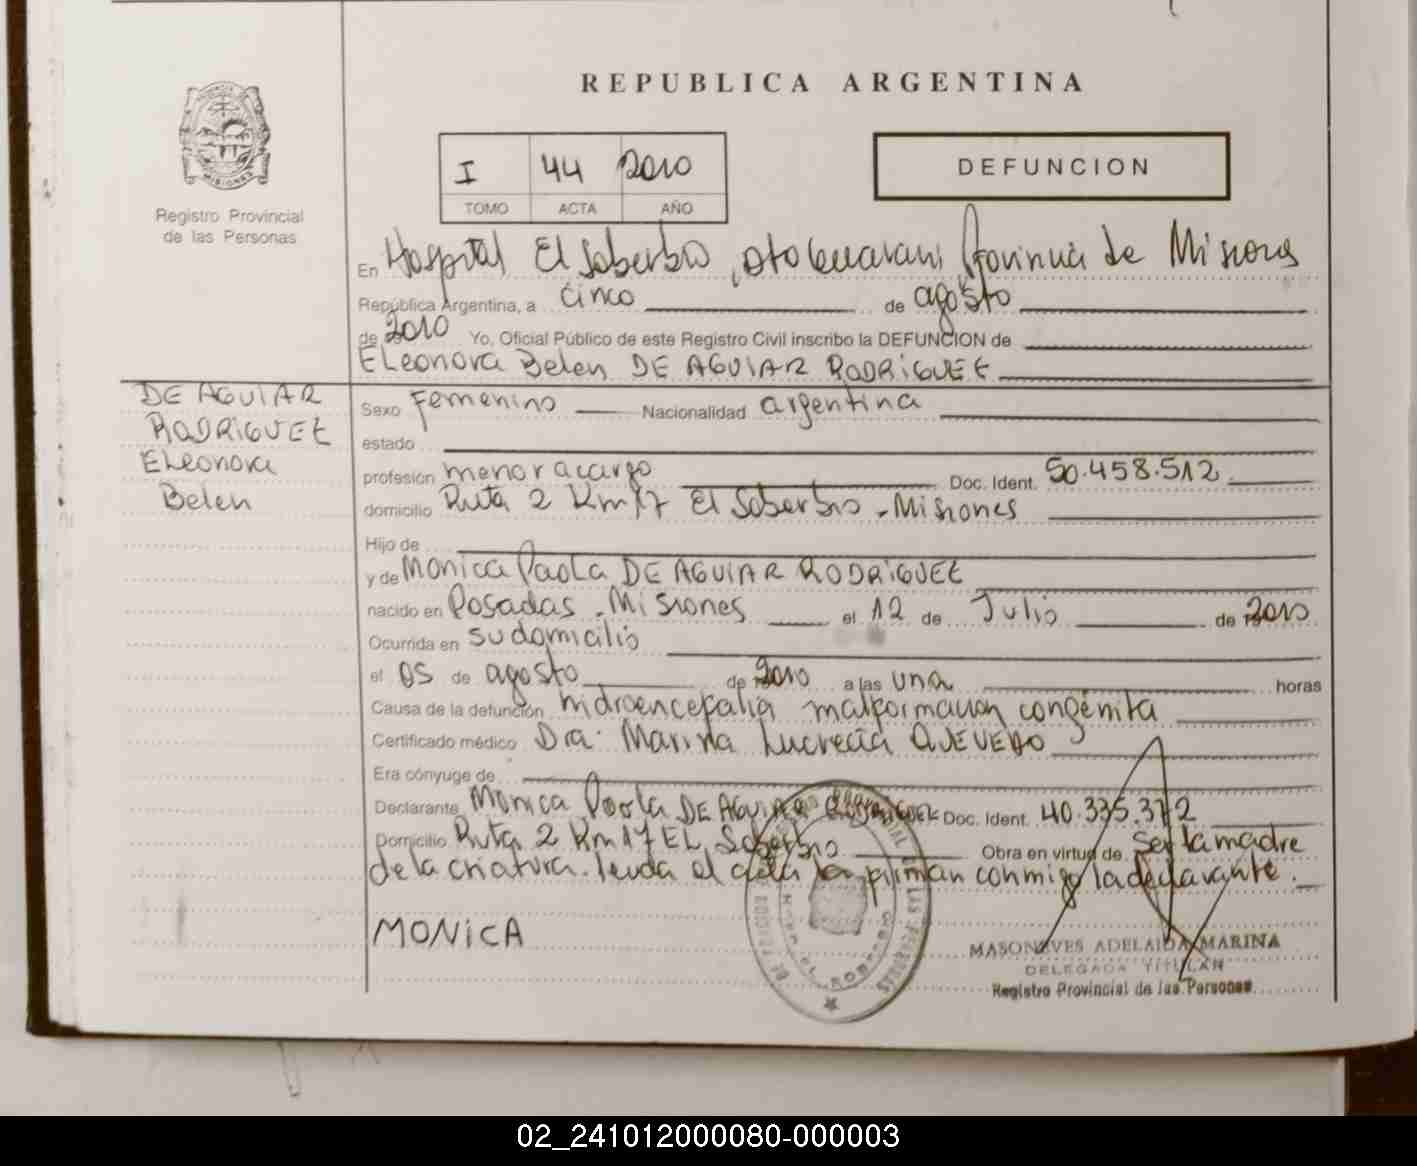 REPUBLICA ARGENTINA
I 44 2010
TOMO ACTA AÑO
DEFUNCION
Registro Provincial
de las Personas
MISIONES
En Hospital El Soberbio, Dto Guarani Provincia de Misiones
República Argentina, a cinco de agosto
de 2010 Yo, Oficial Público de este Registro Civil inscribo la DEFUNCION de
Eleonora Belen DE AGUIAR RODRIGUEZ
DE AGUIAR
RODRIGUEZ
Eleonora
Belen
Sexo Femenino Nacionalidad argentina
estado
profesión menor a cargo Doc. Ident. 50.458.512
domicilio Ruta 2 Km 17 El Soberbio - Misiones
Hijo de
y de Monica Paola DE AGUIAR RODRIGUEZ
nacido en Posadas - Misiones el 12 de Julio de 2010
Ocurrida en su domicilio
el 05 de agosto de 2010 a las una horas
Causa de la defunción hidroencefalia malformacion congénita
Certificado médico Dra. Marina Lucrecia QUEVEDO
Era cónyuge de
Declarante Monica Paola DE AGUIAR RODRIGUEZ Doc. Ident. 40.335.372
Domicilio Ruta 2 Km 17 EL Soberbio Obra en virtud de Ser la madre
de la criatura. leida el acta la firman conmigo la declarante.
MONICA
MASONEVES ADELAIDA MARINA
DELEGADA TITULAR
Registro Provincial de las Personas
02_241012000080-000003